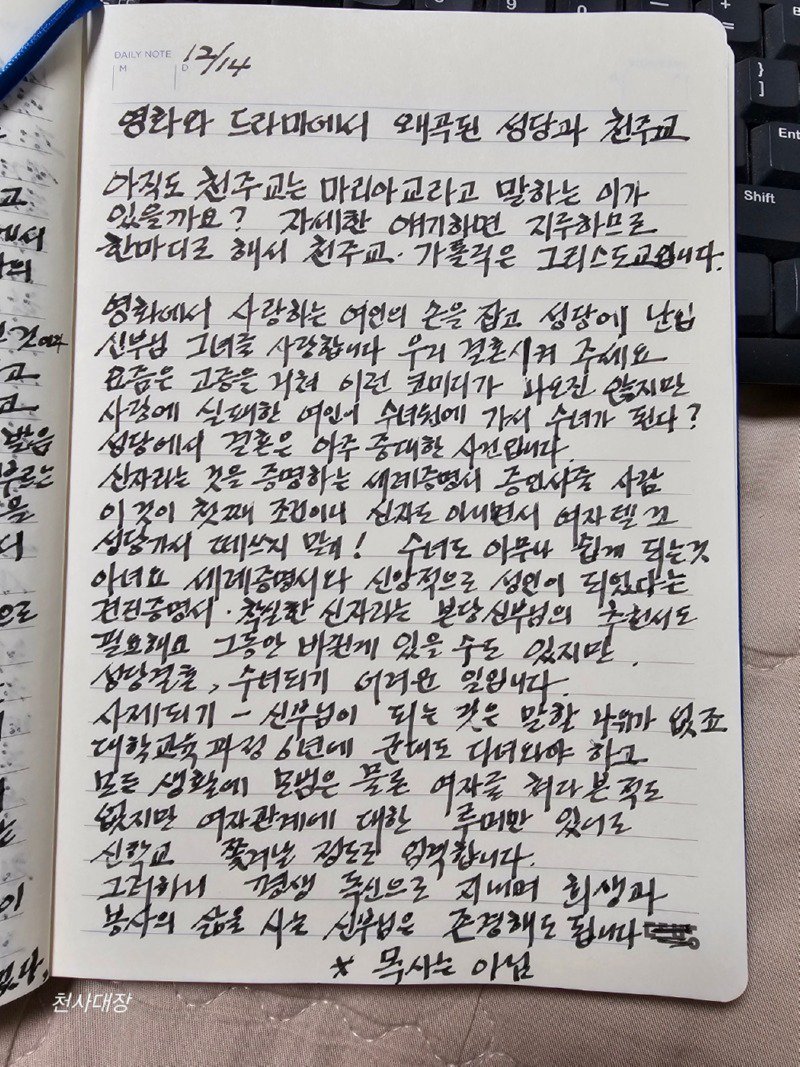 DAILY NOTE
M
D
12/14
영화와 드라마에서 왜곡된 성당과 천주교
아직도 천주교는 마리아교라고 말하는 이가
있을까요? 자세한 얘기하면 지루하므로
한마디로 해서 천주교·가톨릭은 그리스도교입니다.
영화에서 사랑하는 여인의 손을 잡고 성당에 난입
신부님 그녀를 사랑합니다 우리 결혼시켜 주세요
요즘은 고증을 거쳐 이런 코미디가 나오진 않지만
사랑에 실패한 여인이 수녀원에 가서 수녀가 된다?
성당에서 결혼은 아주 중대한 사건입니다.
신자라는 것을 증명하는 세례증명서 증인서줄 사람
이것이 첫째 조건이니 신자도 아니면서 여자 델꼬
성당가서 떼쓰지 말기! 수녀도 아무나 쉽게 되는것
아녀요 세례증명서와 신앙적으로 성인이 되었다는
견진증명서·착실한 신자라는 본당신부님의 추천서도
필요해요 그동안 바뀐게 있을 수도 있지만.
성당결혼, 수녀되기 어려운 일입니다.
사제되기 - 신부님이 되는 것은 말할 나위가 없죠
대학교육과정 6년에 군대도 다녀와야 하고
모든 생활에 모범은 물론 여자를 쳐다본 적도
없지만 여자관계에 대한 루머만 있어도
신학교 쫓겨날 정도로 엄격합니다.
그러하니 평생 독신으로 지내며 희생과
봉사의 삶을 사는 신부님은 존경해도 됩니다
* 목사는 아님
천사대장
9
0
}
]
Ent
Shift
고
에서
것이다
고
고
말씀
을
서
으로
는
이
없다.